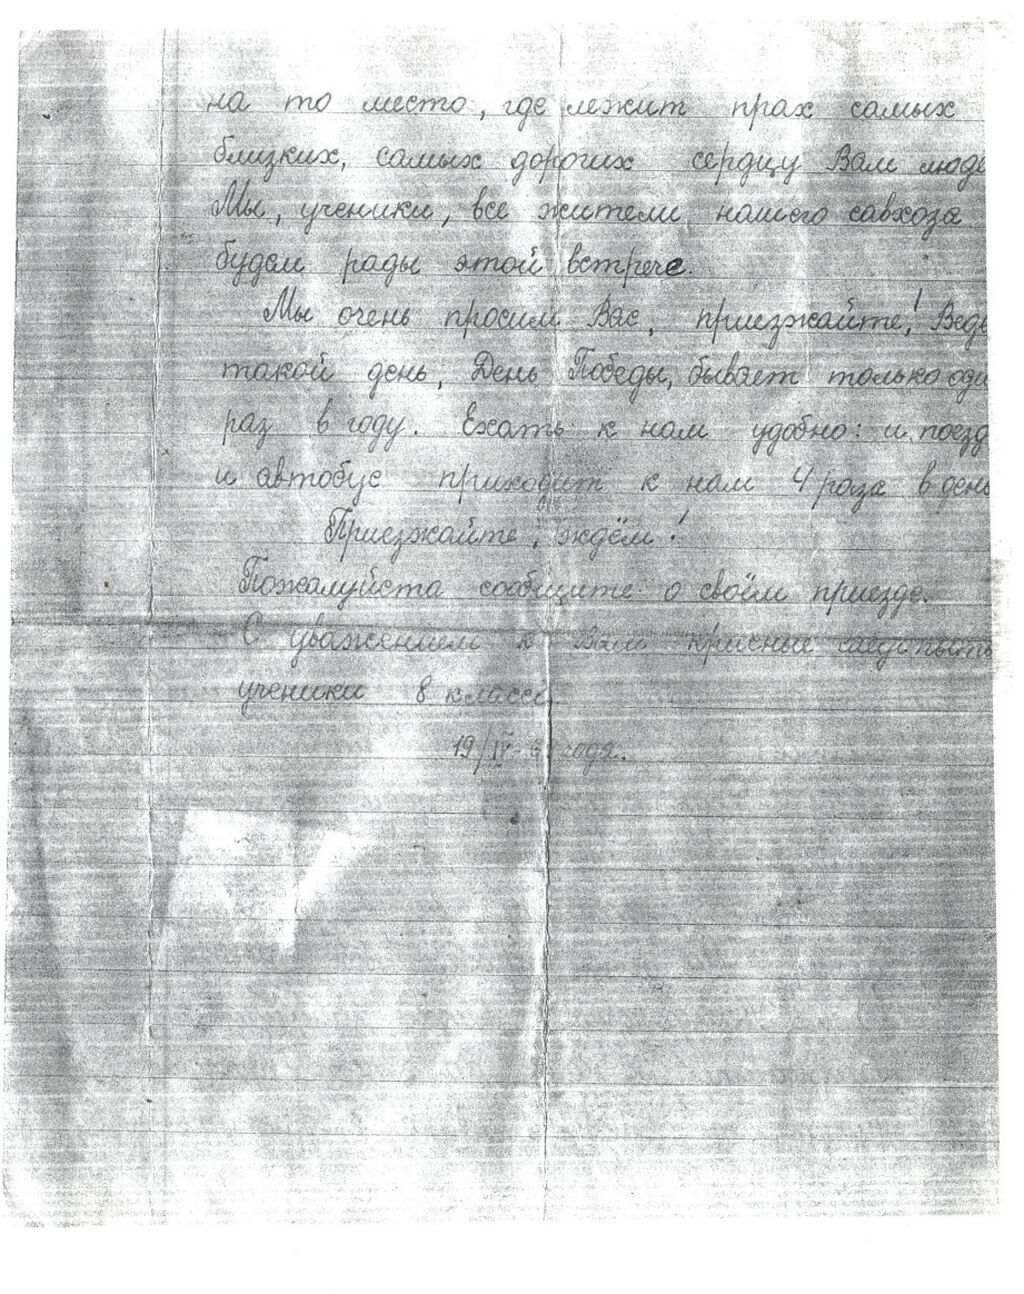 на то место, где лежит прах самых
близких, самых дорогих сердцу Вам люде
Мы, ученики, все жители нашего савхоза
будем рады этой встрече.
Мы очень просим Вас, приезжайте! Ведь
такой день, День Победы, бывает только оди
раз в году. Ехать к нам удобно: и поезд
и автобус приходит к нам 4 раза в день
Приезжайте, ждём!
Пожалуйста сообщите о своём приезде.
С уважением к Вам красные следопыты
ученики 8 класса
19/IV года.